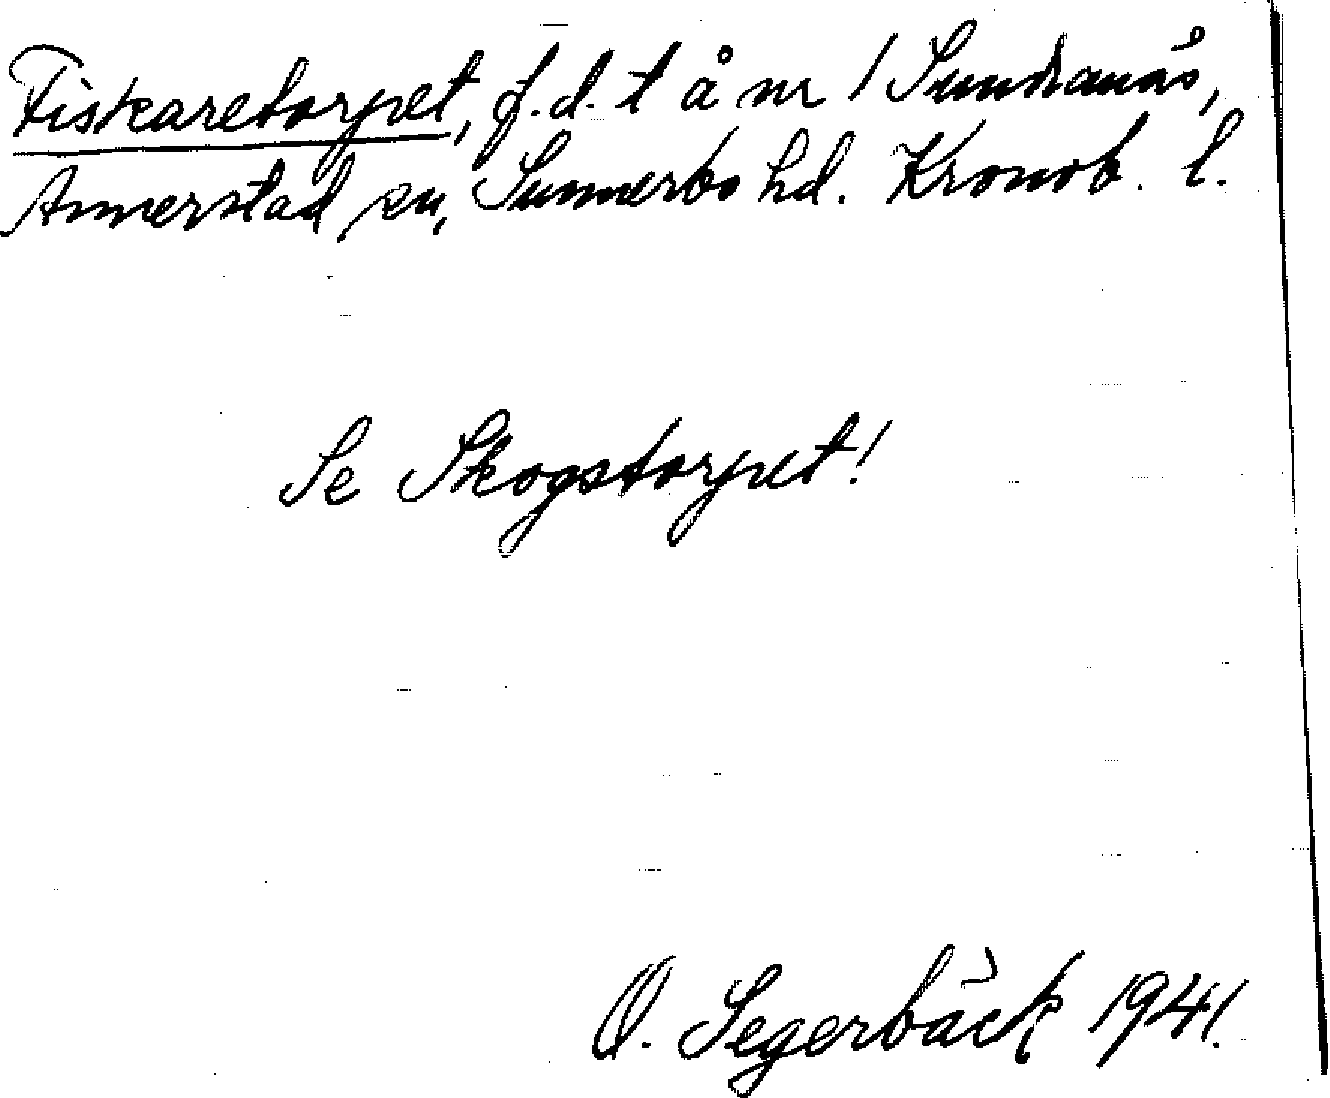 Fiskaretorpet, f.d. t å nr 1 Sundranäs,
Annerstad sn, Sunnerbo hd. Kronob. l.
Se Skogstorpet!
O. Segerbäck 1941.